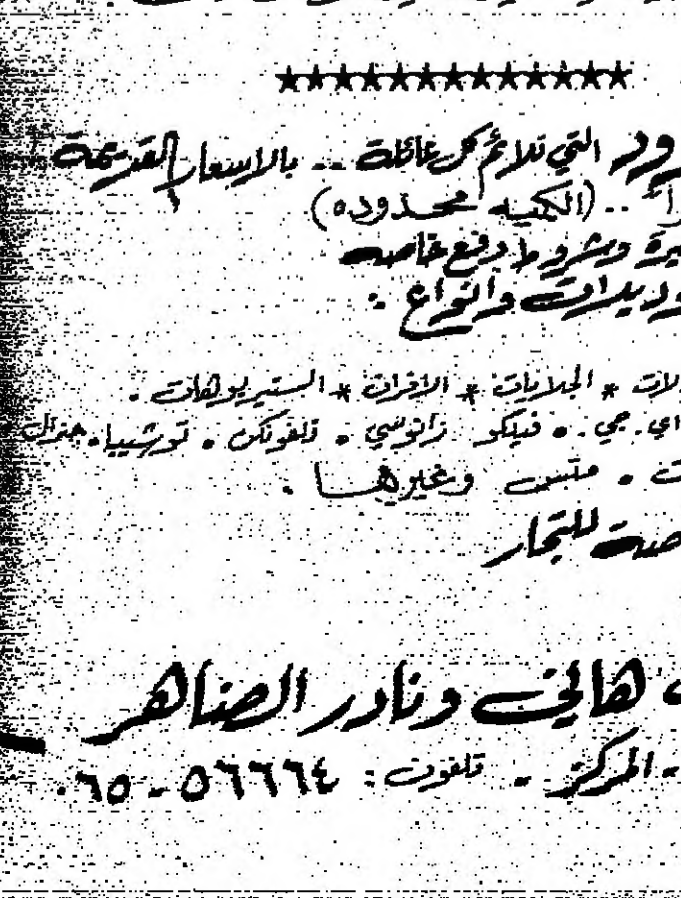 ★★★★★★★★★★★★★
رود التي تلائم كل عائلة .. بالاسعار القديمة
.. (الكميه محدوده)
يرة وبشروط دفع خاصه
وديلات وانواع :
لات * الجلايات * الافران * الستيريوهات .
اي. جي. • فيلكو زانوسي • تلفونكن • توشيبا. جنرال
ت • متس وغيرها .
صة للتجار
هاني ونادر الظاهر
- المركز - تلفون : ٥٦٦٦٤ - ٠٦٥